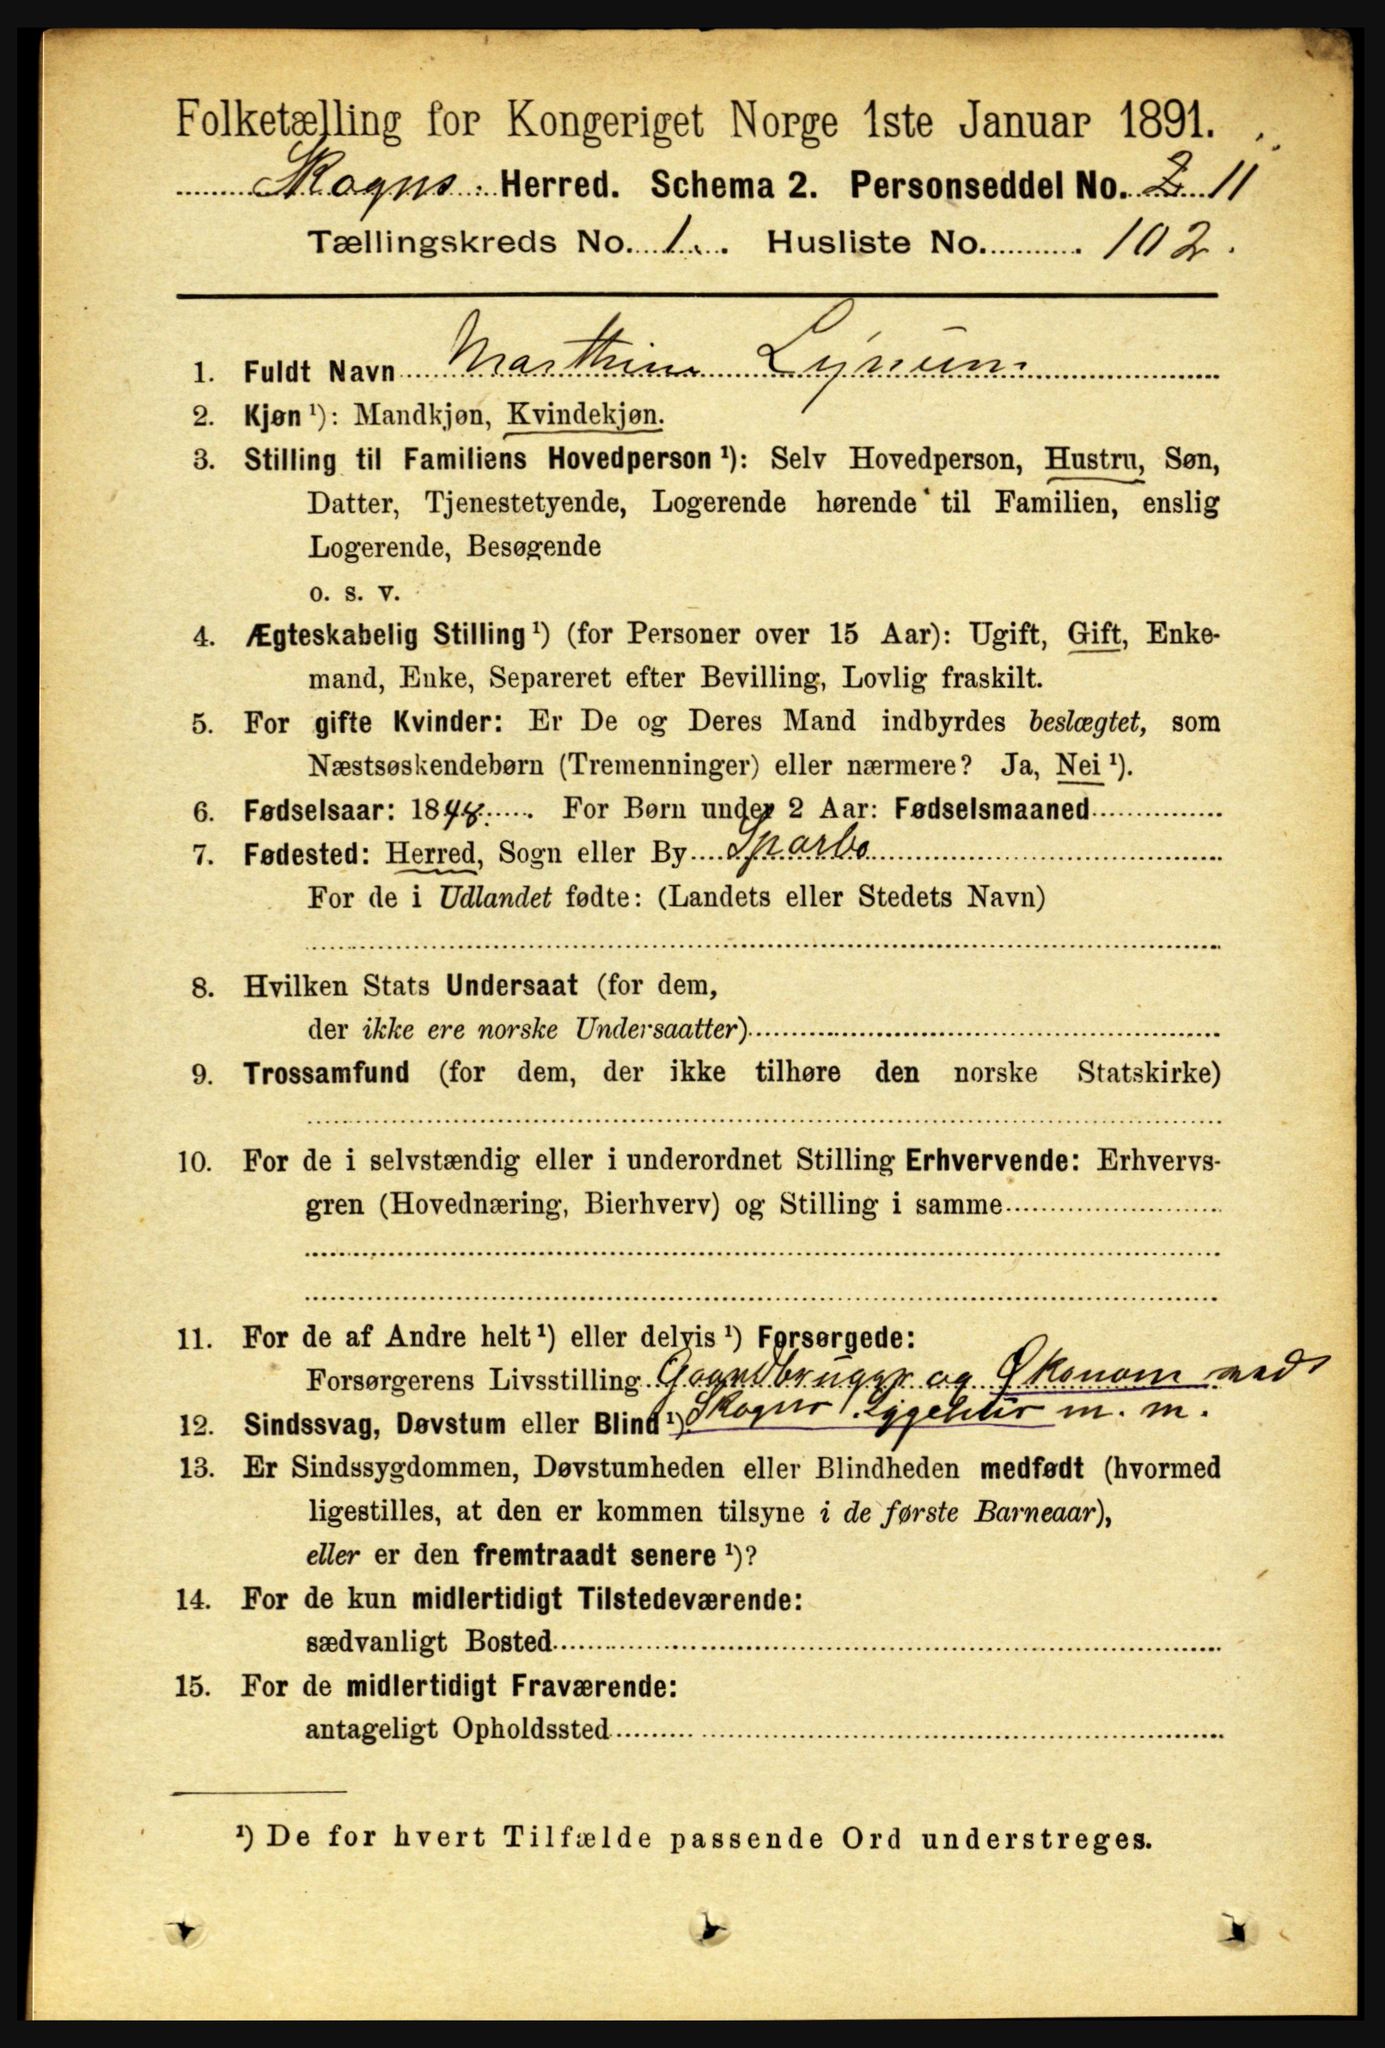 Folketælling for Kongeriget Norge 1ste Januar 1891.
Skogns Herred. Schema 2. Personseddel No. 2 11
Tællingskreds No. 1. Husliste No. 102.
1. Fuldt Navn Marthine Lynum
2. Kjøn ¹): Mandkjøn, Kvindekjøn.
3. Stilling til Familiens Hovedperson ¹): Selv Hovedperson, Hustru, Søn,
Datter, Tjenestetyende, Logerende hørende til Familien, enslig
Logerende, Besøgende
o. s. v.
4. Ægteskabelig Stilling ¹) (for Personer over 15 Aar): Ugift, Gift, Enke-
mand, Enke, Separeret efter Bevilling, Lovlig fraskilt.
5. For gifte Kvinder: Er De og Deres Mand indbyrdes beslægtet, som
Næstsøskendebørn (Tremenninger) eller nærmere? Ja, Nei ¹).
6. Fødselsaar: 1844. For Børn under 2 Aar: Fødselsmaaned
7. Fødested: Herred, Sogn eller By Sparbo
For de i Udlandet fødte: (Landets eller Stedets Navn)
8. Hvilken Stats Undersaat (for dem,
der ikke ere norske Undersaatter)
9. Trossamfund (for dem, der ikke tilhøre den norske Statskirke)
10. For de i selvstændig eller i underordnet Stilling Erhvervende: Erhvervs-
gren (Hovednæring, Bierhverv) og Stilling i samme
11. For de af Andre helt ¹) eller delvis ¹) Forsørgede:
Forsørgerens Livsstilling Gaardbruger og Økonom ved
12. Sindssvag, Døvstum eller Blind ¹) Skogns Sygehus m. m.
13. Er Sindssygdommen, Døvstumheden eller Blindheden medfødt (hvormed
ligestilles, at den er kommen tilsyne i de første Barneaar),
eller er den fremtraadt senere ¹)?
14. For de kun midlertidigt Tilstedeværende:
sædvanligt Bosted
15. For de midlertidigt Fraværende:
antageligt Opholdssted
¹) De for hvert Tilfælde passende Ord understreges.